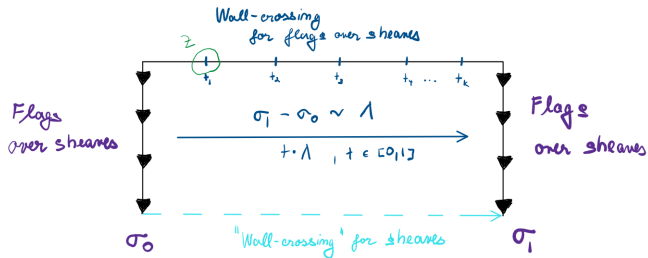 Wall-crossing
for flags over sheaves
z
t₁ t₂ t₃ t₄ ... tₖ
Flags
over sheaves
σ₁ - σ₀ ~ Λ
t·Λ , t ∈ [0,1]
Flags
over sheaves
"Wall-crossing" for sheaves
σ₀
σ₁